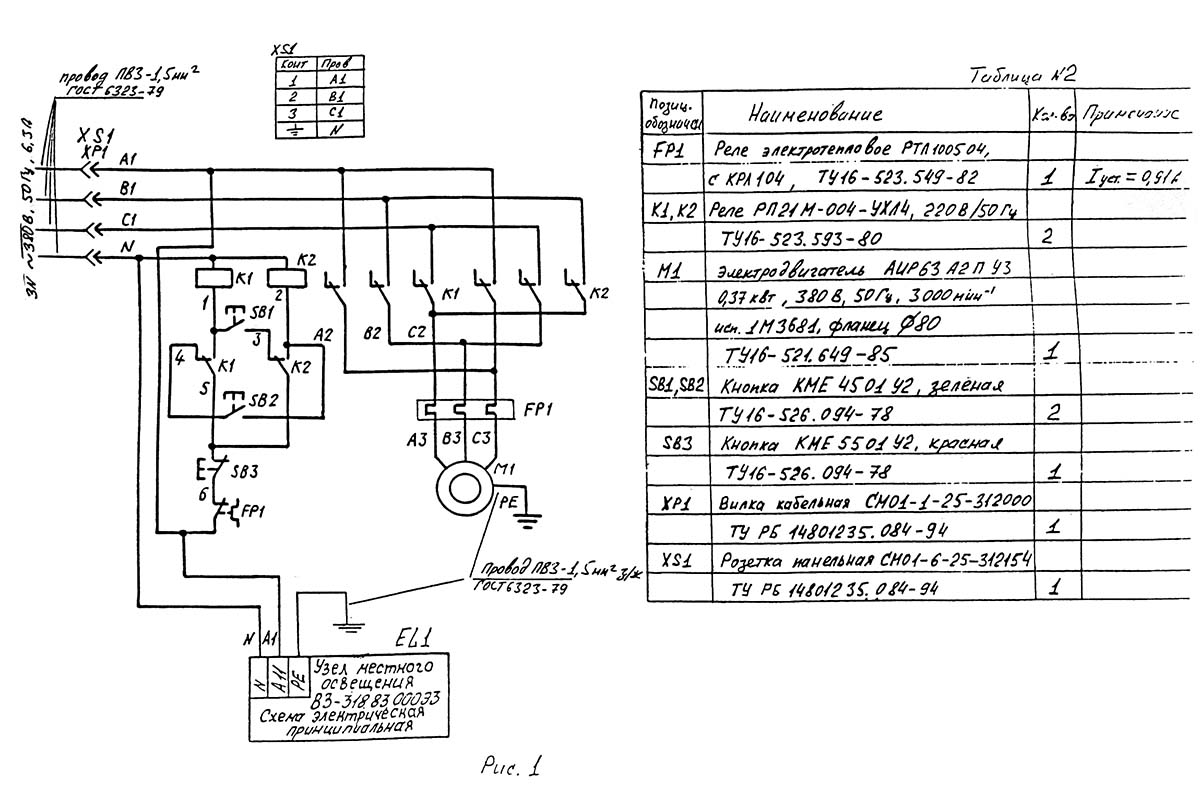 XS1
Конт Пров
1 А1
2 В1
3 С1
N
провод ПВ3-1,5мм²
ГОСТ 6323-79
3N ~380В, 50Гц, 6,3А
XS1
XP1
А1
В1
С1
N
К1
К2
1
2
SB1
3
А2
В2
С2
К1
К2
4
К1
К2
5
SB2
FP1
А3
В3
С3
SB3
М1
6
PE
FP1
Провод ПВ3-1,5мм² з/ж
ГОСТ 6323-79
N
А1
EL1
N
А11
PE
Узел местного
освещения
В3-318.83.000Э3
Схема электрическая
принципиальная
Рис. 1
Таблица №2
Позиц. обозначен
Наименование
Кол-во
FP1 Реле электротепловое РТЛ100504,
с КРЛ104, ТУ16-523.549-82 1 Iуст.=0,91А
К1,К2 Реле РП21М-004-УХЛ4, 220В/50Гц
ТУ16-523.593-80 2
М1 Электродвигатель АИР63 А2П У3
0,37кВт, 380В, 50Гц, 3000min⁻¹
исп. 1М3681, фланец Ø80
ТУ16-521.649-85 1
SB1,SB2 Кнопка КМЕ 4501 У2, зелёная
ТУ16-526.094-78 2
SB3 Кнопка КМЕ 5501 У2, красная
ТУ16-526.094-78 1
XP1 Вилка кабельная СМ01-1-25-312000
ТУ РБ 14801235.084-94 1
XS1 Розетка панельная СМ01-6-25-312154
ТУ РБ 14801235.084-94 1